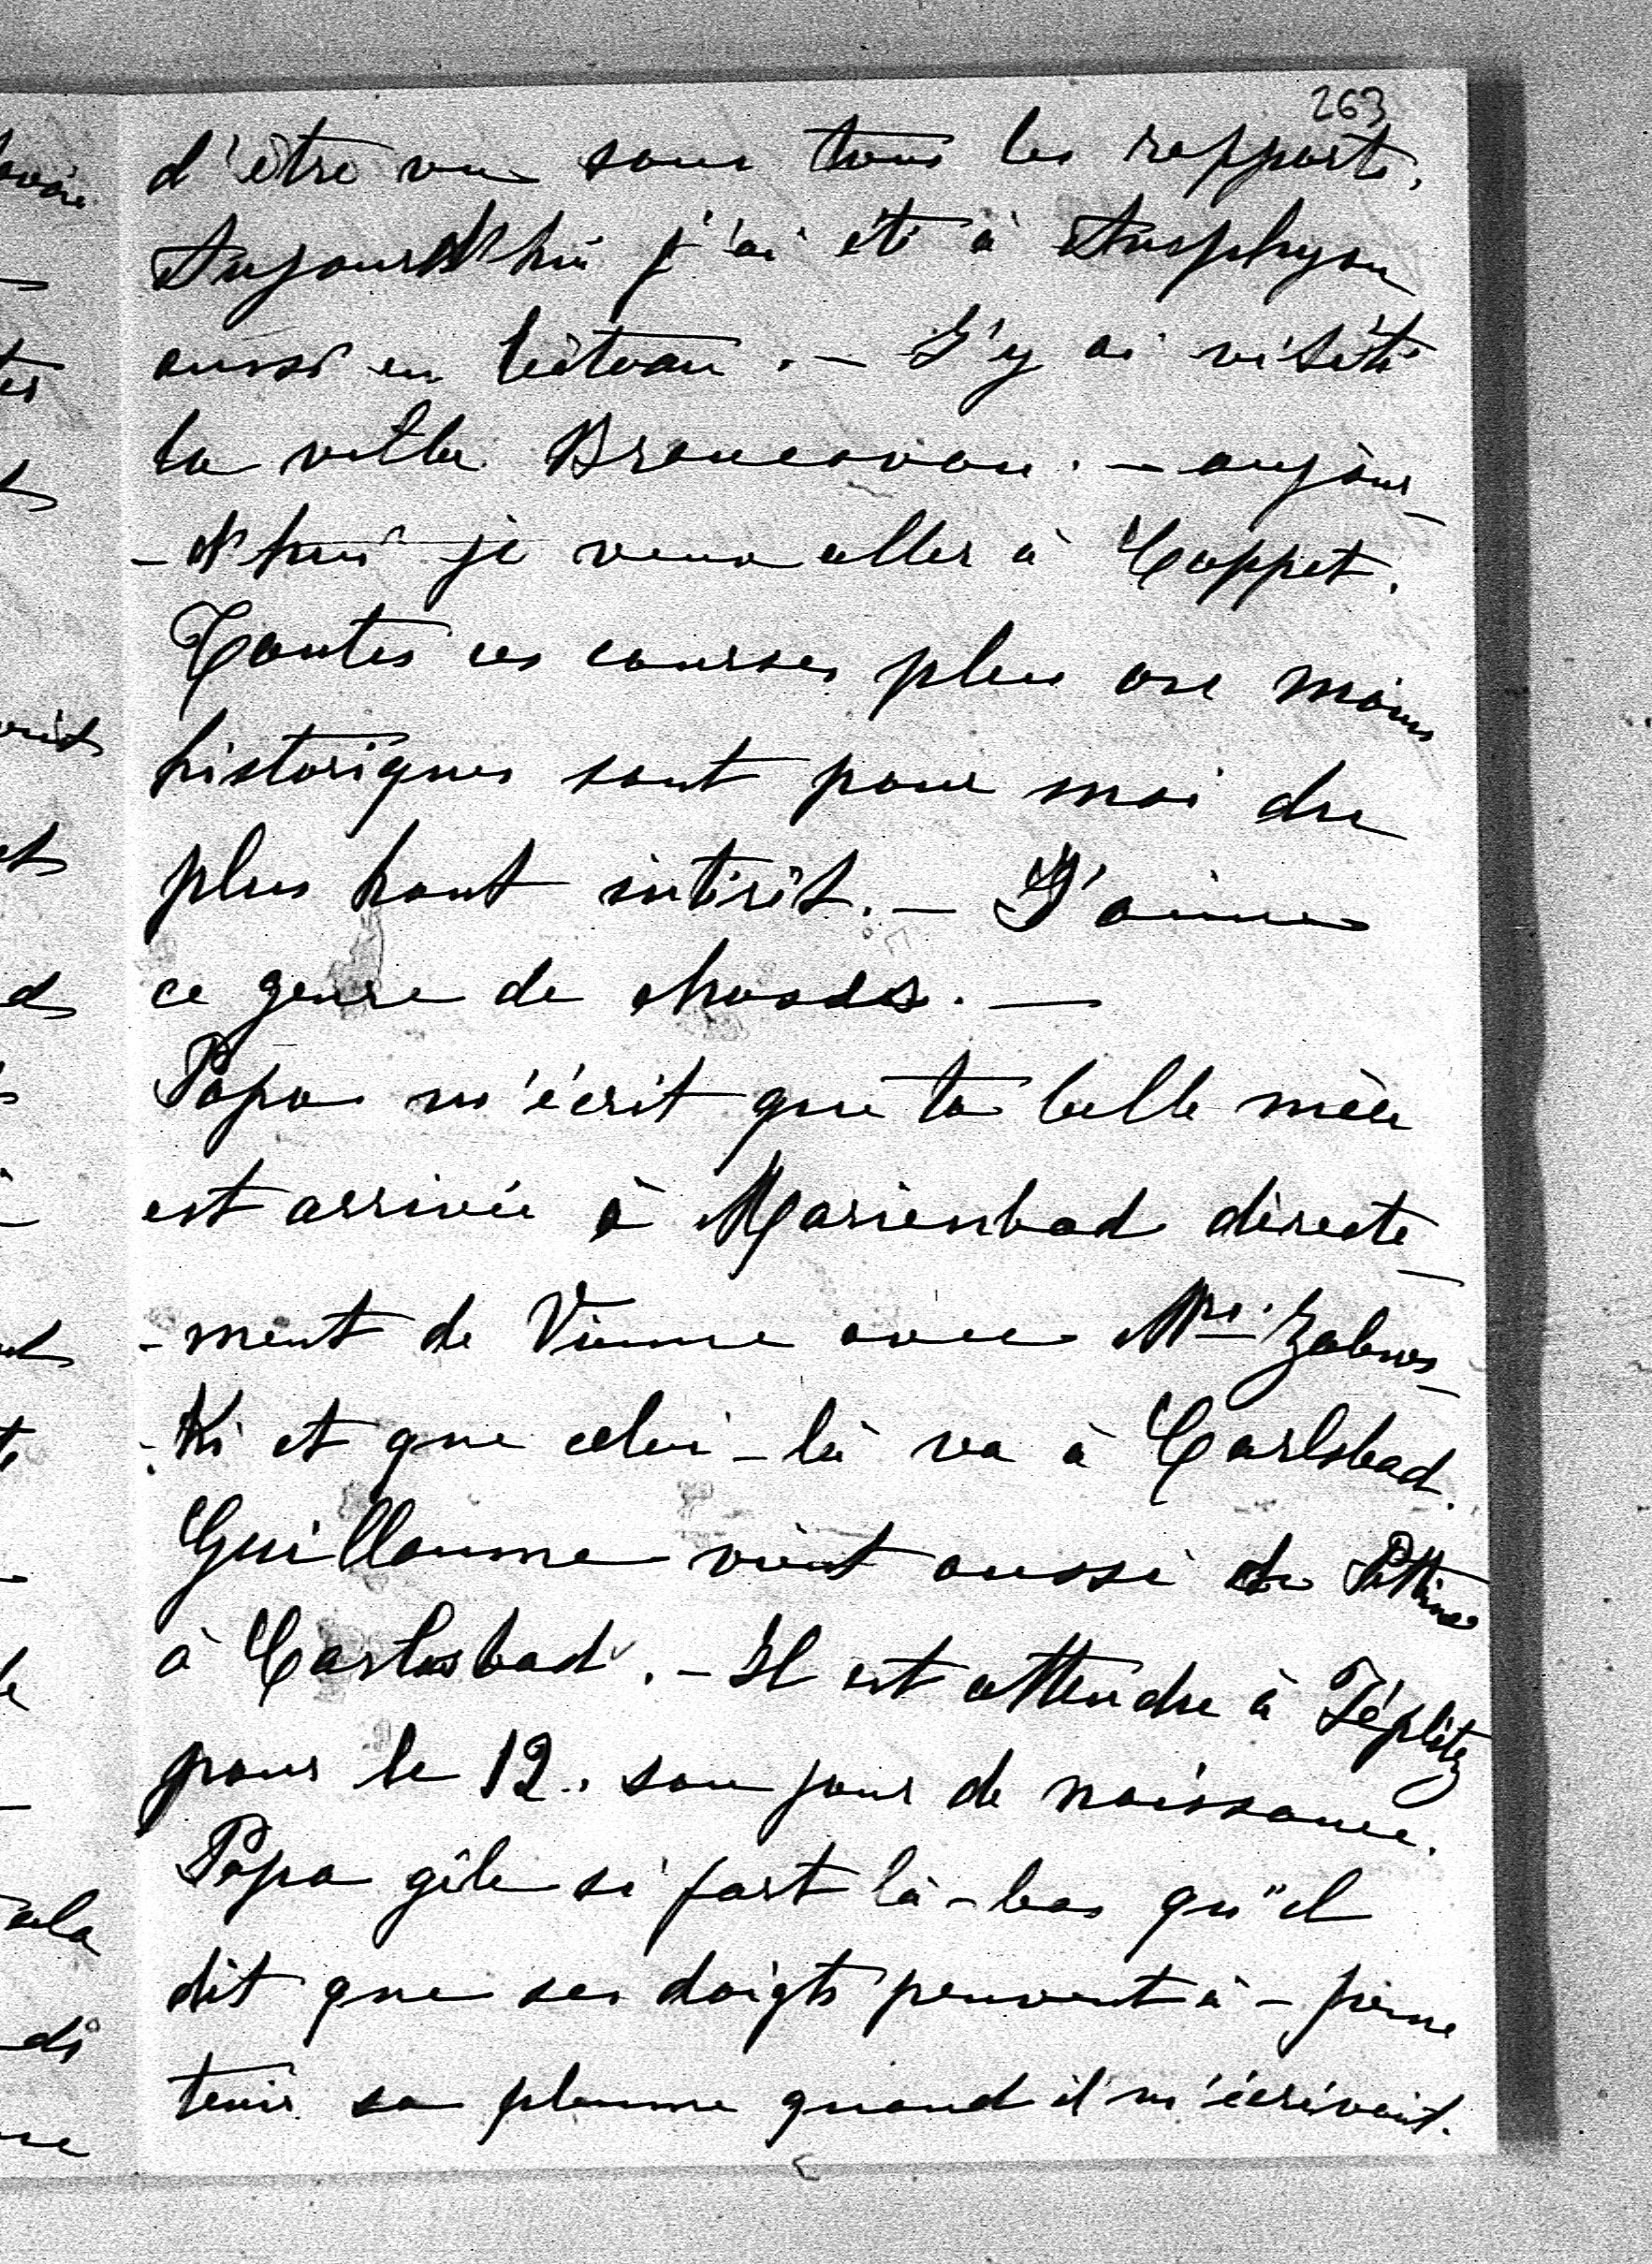 263
d'être vu sous tous les rapports.
Aujourd'hui j'ai été à Amphyon
aussi en bateau. — J'y ai visité
la villa Brancovan. — aujour-
-d'hui je veux aller à Coppet.
Toutes ces courses plus ou moins
historiques sont pour moi du
plus haut intérêt. — J'aime
ce genre de choses. —
Papa m'écrit que ta belle mère
est arrivée à Marienbad directe-
-ment de Vienne avec Mr.
-ki et que celui-là va à Carlsbad.
Guillaume vient aussi de
à Carlsbad. — Il est attendu à Téplitz
pour le 12. son jour de naissance.
Papa gèle si fort là-bas qu'il
dit que ses doigts peuvent à-peine
tenir sa plume quand il m'écrivait.